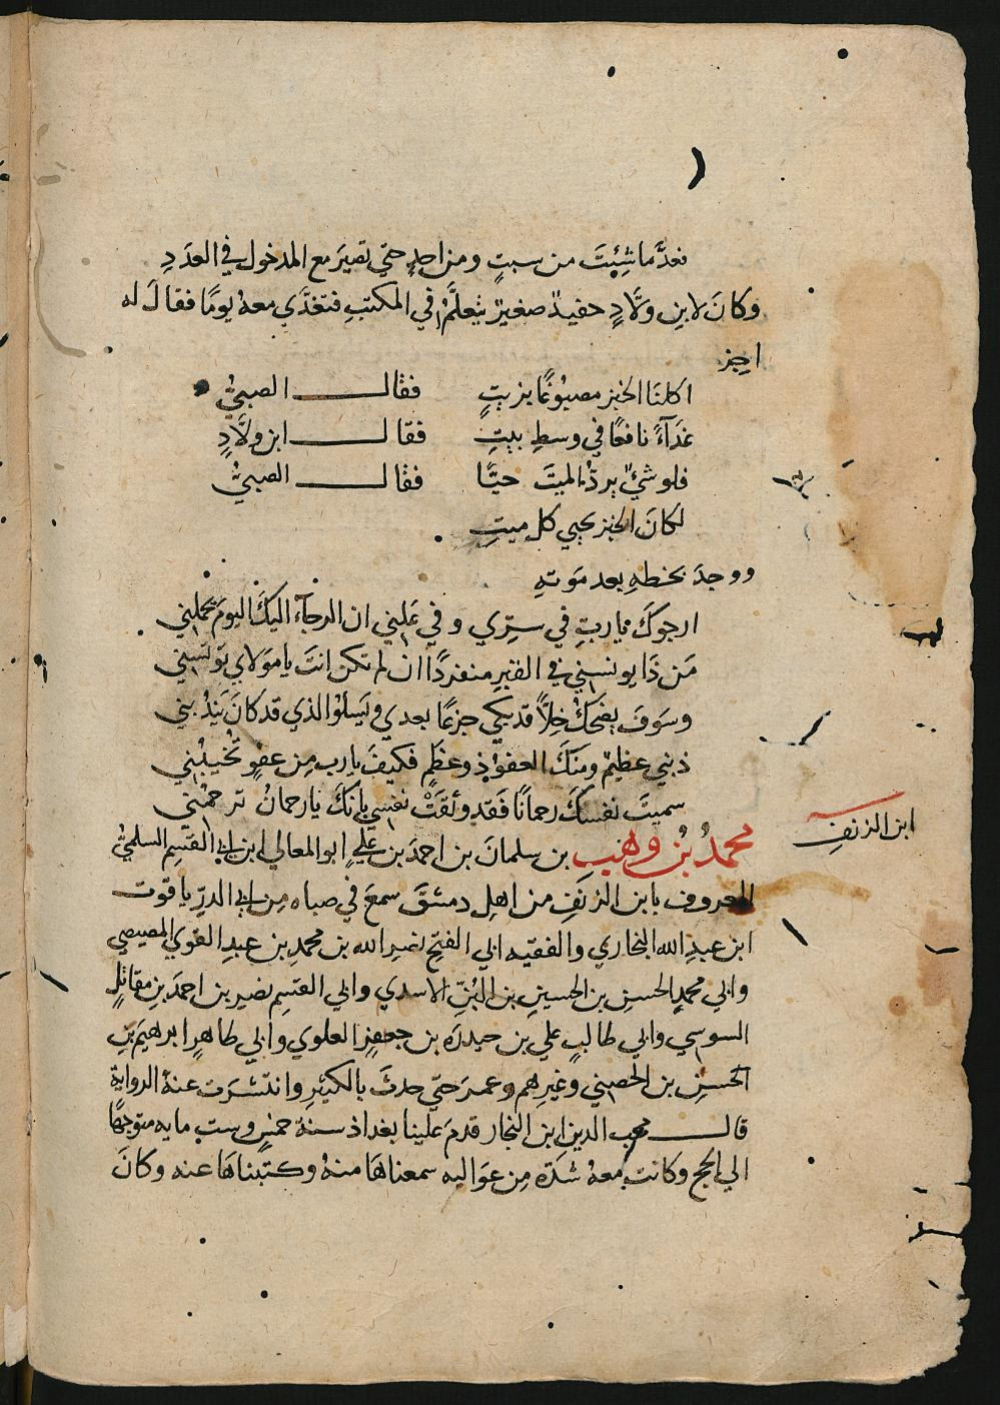 فعدَّ ما شِئتَ من سبتٍ ومن احدٍ حتى تصيرَ مع المدخول في العدَدِ
وكانَ لابنِ ولَّادٍ حفيدٌ صغيرٌ يتعلَّمُ في المكتبِ فتغدَّى معهُ يومًا فقالَ له
اجِز
اكلنَا الخبز مصبُوغًا بزيتٍ فقال الصبيُّ
غدَآءً نافعًا في وسطِ بيتِ فقال ابن ولَّادٍ
فلو شيٌ يردُّ الميتَ حيًّا فقال الصبيُّ
لكانَ الخبز يحيي كل ميتِ
ووجدَ بخطهِ بعد مَوتهِ
ارجوكَ يا ربِ في سِتري وفي عَلني ان الرجآءَ اليكَ اليومَ يحملني
مَن ذَا يونسني في القبرِ منفردًا ان لم تكن انتَ يا مولاي تونسني
وسَوفَ يضحكُ خِلًّا قد بكى جزعًا بعدي ويَسلُوا الذي قد كانَ يَندُبني
ذنبي عظيمٌ ومنكَ العفوُ ذو عظَمٍ فكيفَ يا ربِ من عفوٍ تُخيبُني
سميتَ نفسكَ رحمانًا فَقَد وثقَتْ نفسي بانكَ يا رحمانُ ترحمُني
ابن الزنف
محمدُ بنُ وهبِ بن سلمانَ بن احمدَ بن عليٍ ابو المعالي ابن ابي القسِم السلميُّ
المعروف بابن الزنفِ من اهلِ دمشقَ سمعَ في صباه مِن ابي الدرِّ ياقوت
ابن عبدِ الله البخاري والفقيه ابي الفتحِ نصرِ الله بن محمدِ بن عبدِ القوي المصيصي
وابي محمدٍ الحسنِ بن الحسينِ بن البُنِّ الاسدي وابي القسِم نصرِ بن احمدَ بنِ مقاتلٍ
السوسي وابي طالبٍ علي بن حيدرَه بن جعفرٍ العلوي وابي طاهرٍ ابرهيمَ بنِ
الحسنِ بن الحصني وغيرِهم وعمرَ حتى حدثَ بالكثيرِ وانتشرَت عنهُ الروايةِ
قال محب الدين ابن النجار قدمَ علينا بغداذ سنةَ خمسٍ وستِ مايه متوجهًا
الى الحج وكانت معهُ شدَة مِن عوَاليه سمعناهَا منهُ وكتبناهَا عنه وكانَ